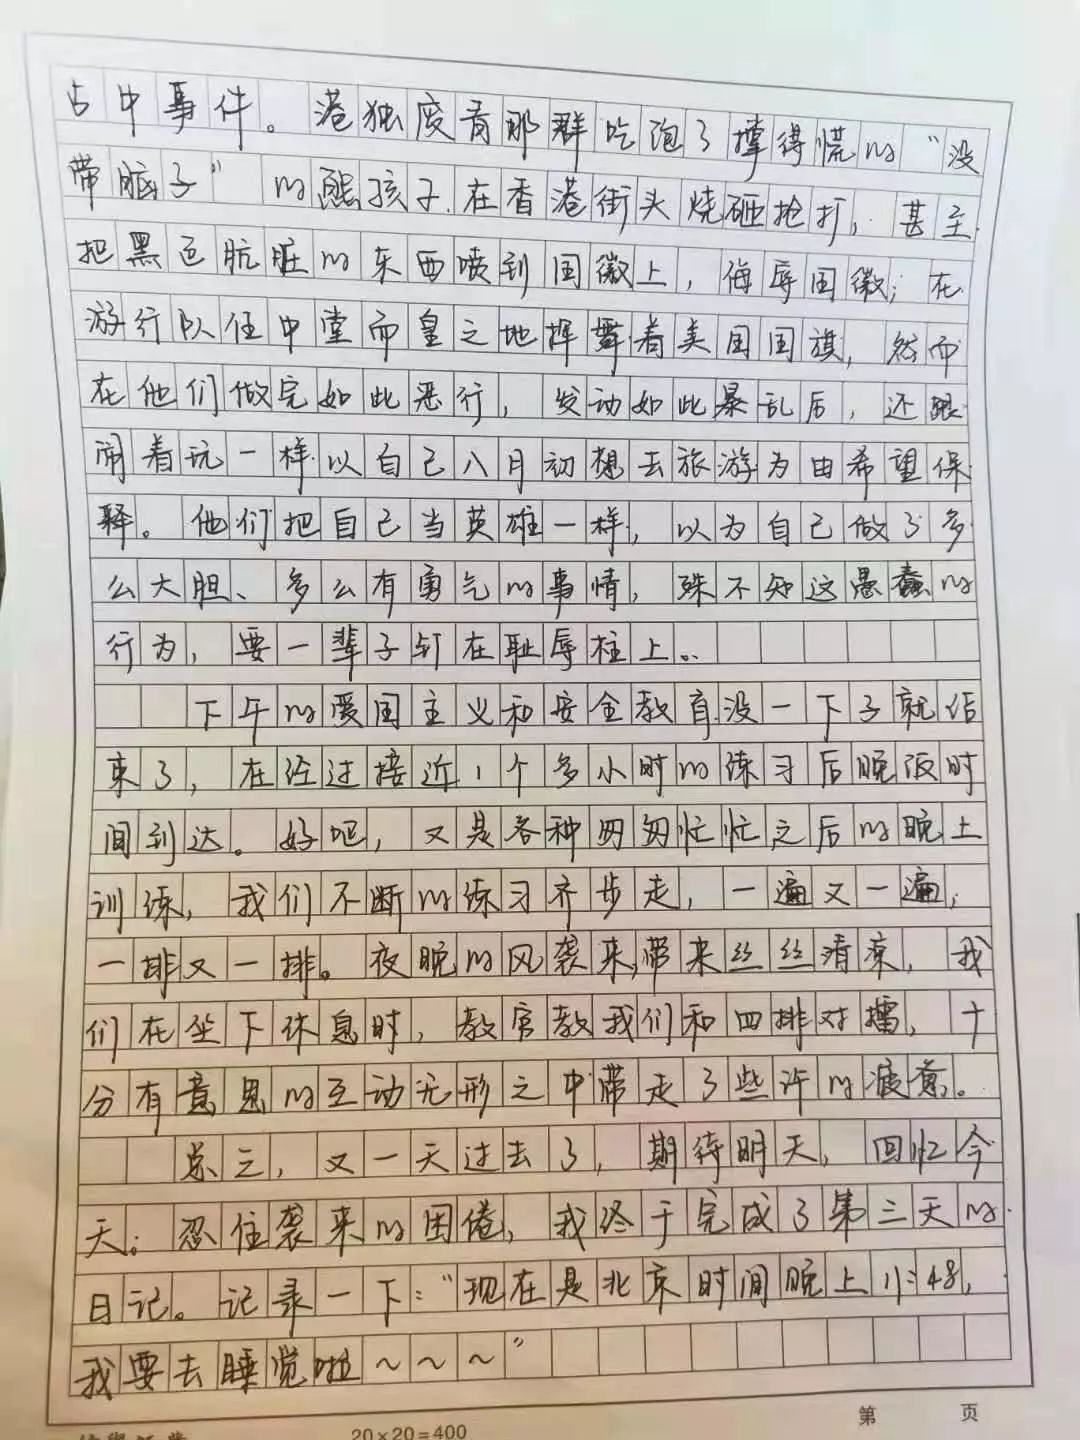 占中事件。港独废青那群吃饱了撑得慌的“没
带脑子”的熊孩子在香港街头烧砸抢打，甚至
把黑色肮脏的东西喷到国徽上，侮辱国徽；在
游行队伍中堂而皇之地挥舞着美国国旗，然而
在他们做完如此恶行，发动如此暴乱后，还跟
闹着玩一样以自己八月初想去旅游为由希望保
释。他们把自己当英雄一样，以为自己做了多
么大胆、多么有勇气的事情，殊不知这愚蠢的
行为，要一辈子钉在耻辱柱上。
下午的爱国主义和安全教育没一下子就结
束了，在经过接近1个多小时的练习后晚饭时
间到达。好吧，又是各种匆匆忙忙之后的晚上
训练，我们不断的练习齐步走，一遍又一遍，
一排又一排。夜晚的风袭来，带来丝丝清凉，我
们在坐下休息时，教官教我们和四排对擂，十
分有意思的互动无形之中带走了些许的疲惫。
总之，又一天过去了，期待明天，回忆今
天；忍住袭来的困倦，我终于完成了第三天的
日记。记录一下：“现在是北京时间晚上11:48，
我要去睡觉啦～～～”
第 页
20×20=400